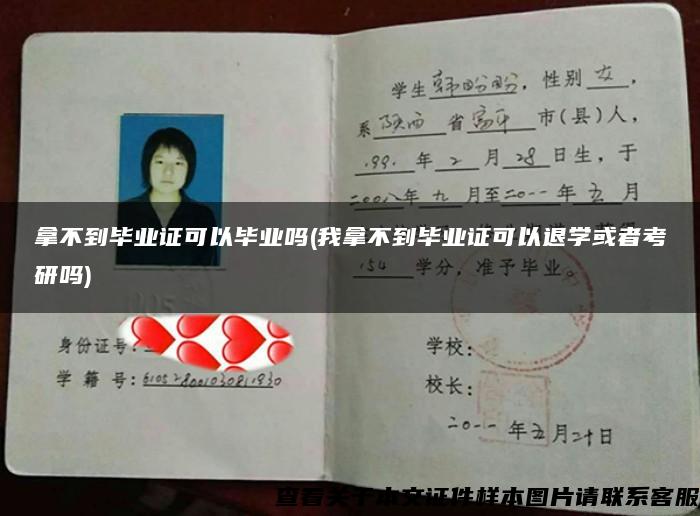 学生韩盼盼，性别女，
系陕西省富平市(县)人，
199.年2月28日生，于
二00八年九月至二0一一年五月
拿不到毕业证可以毕业吗(我拿不到毕业证可以退学或者考
研吗)
154学分，准予毕业。
身份证号：
学籍号：
学校：
校长：
二0一一年五月二十日
查看关于本文证件样本图片请联系客服